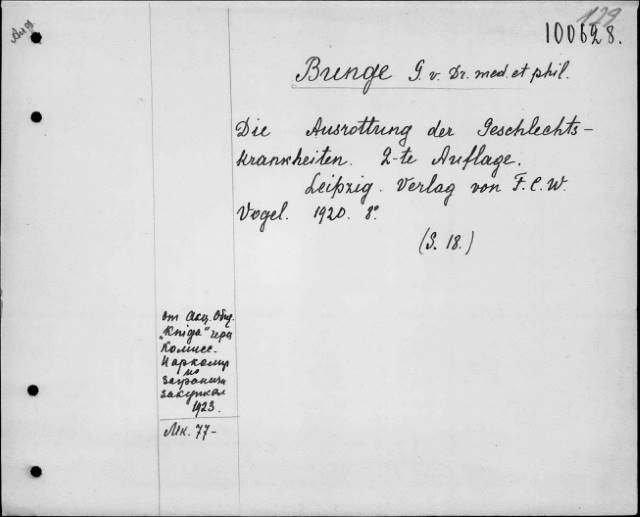 129
100628.
Bunge G. v. Dr. med. et phil.
Die Ausrottung der Geschlechts-
krankheiten. 2-te Auflage.
Leipzig. Verlag von F. C. W.
Vogel. 1920. 8°
(S. 18.)
от Акц. Общ.
"Kniga" чрез
Комисс.
Наркомпр
по
загранич
закупкам
1923.
Mk. 77-